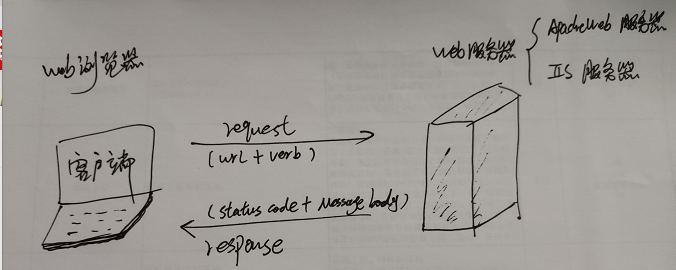 web浏览器
web服务器
Apacheweb 服务器
IIS 服务器
客户端
request
(url + verb)
(status code + Message body)
response